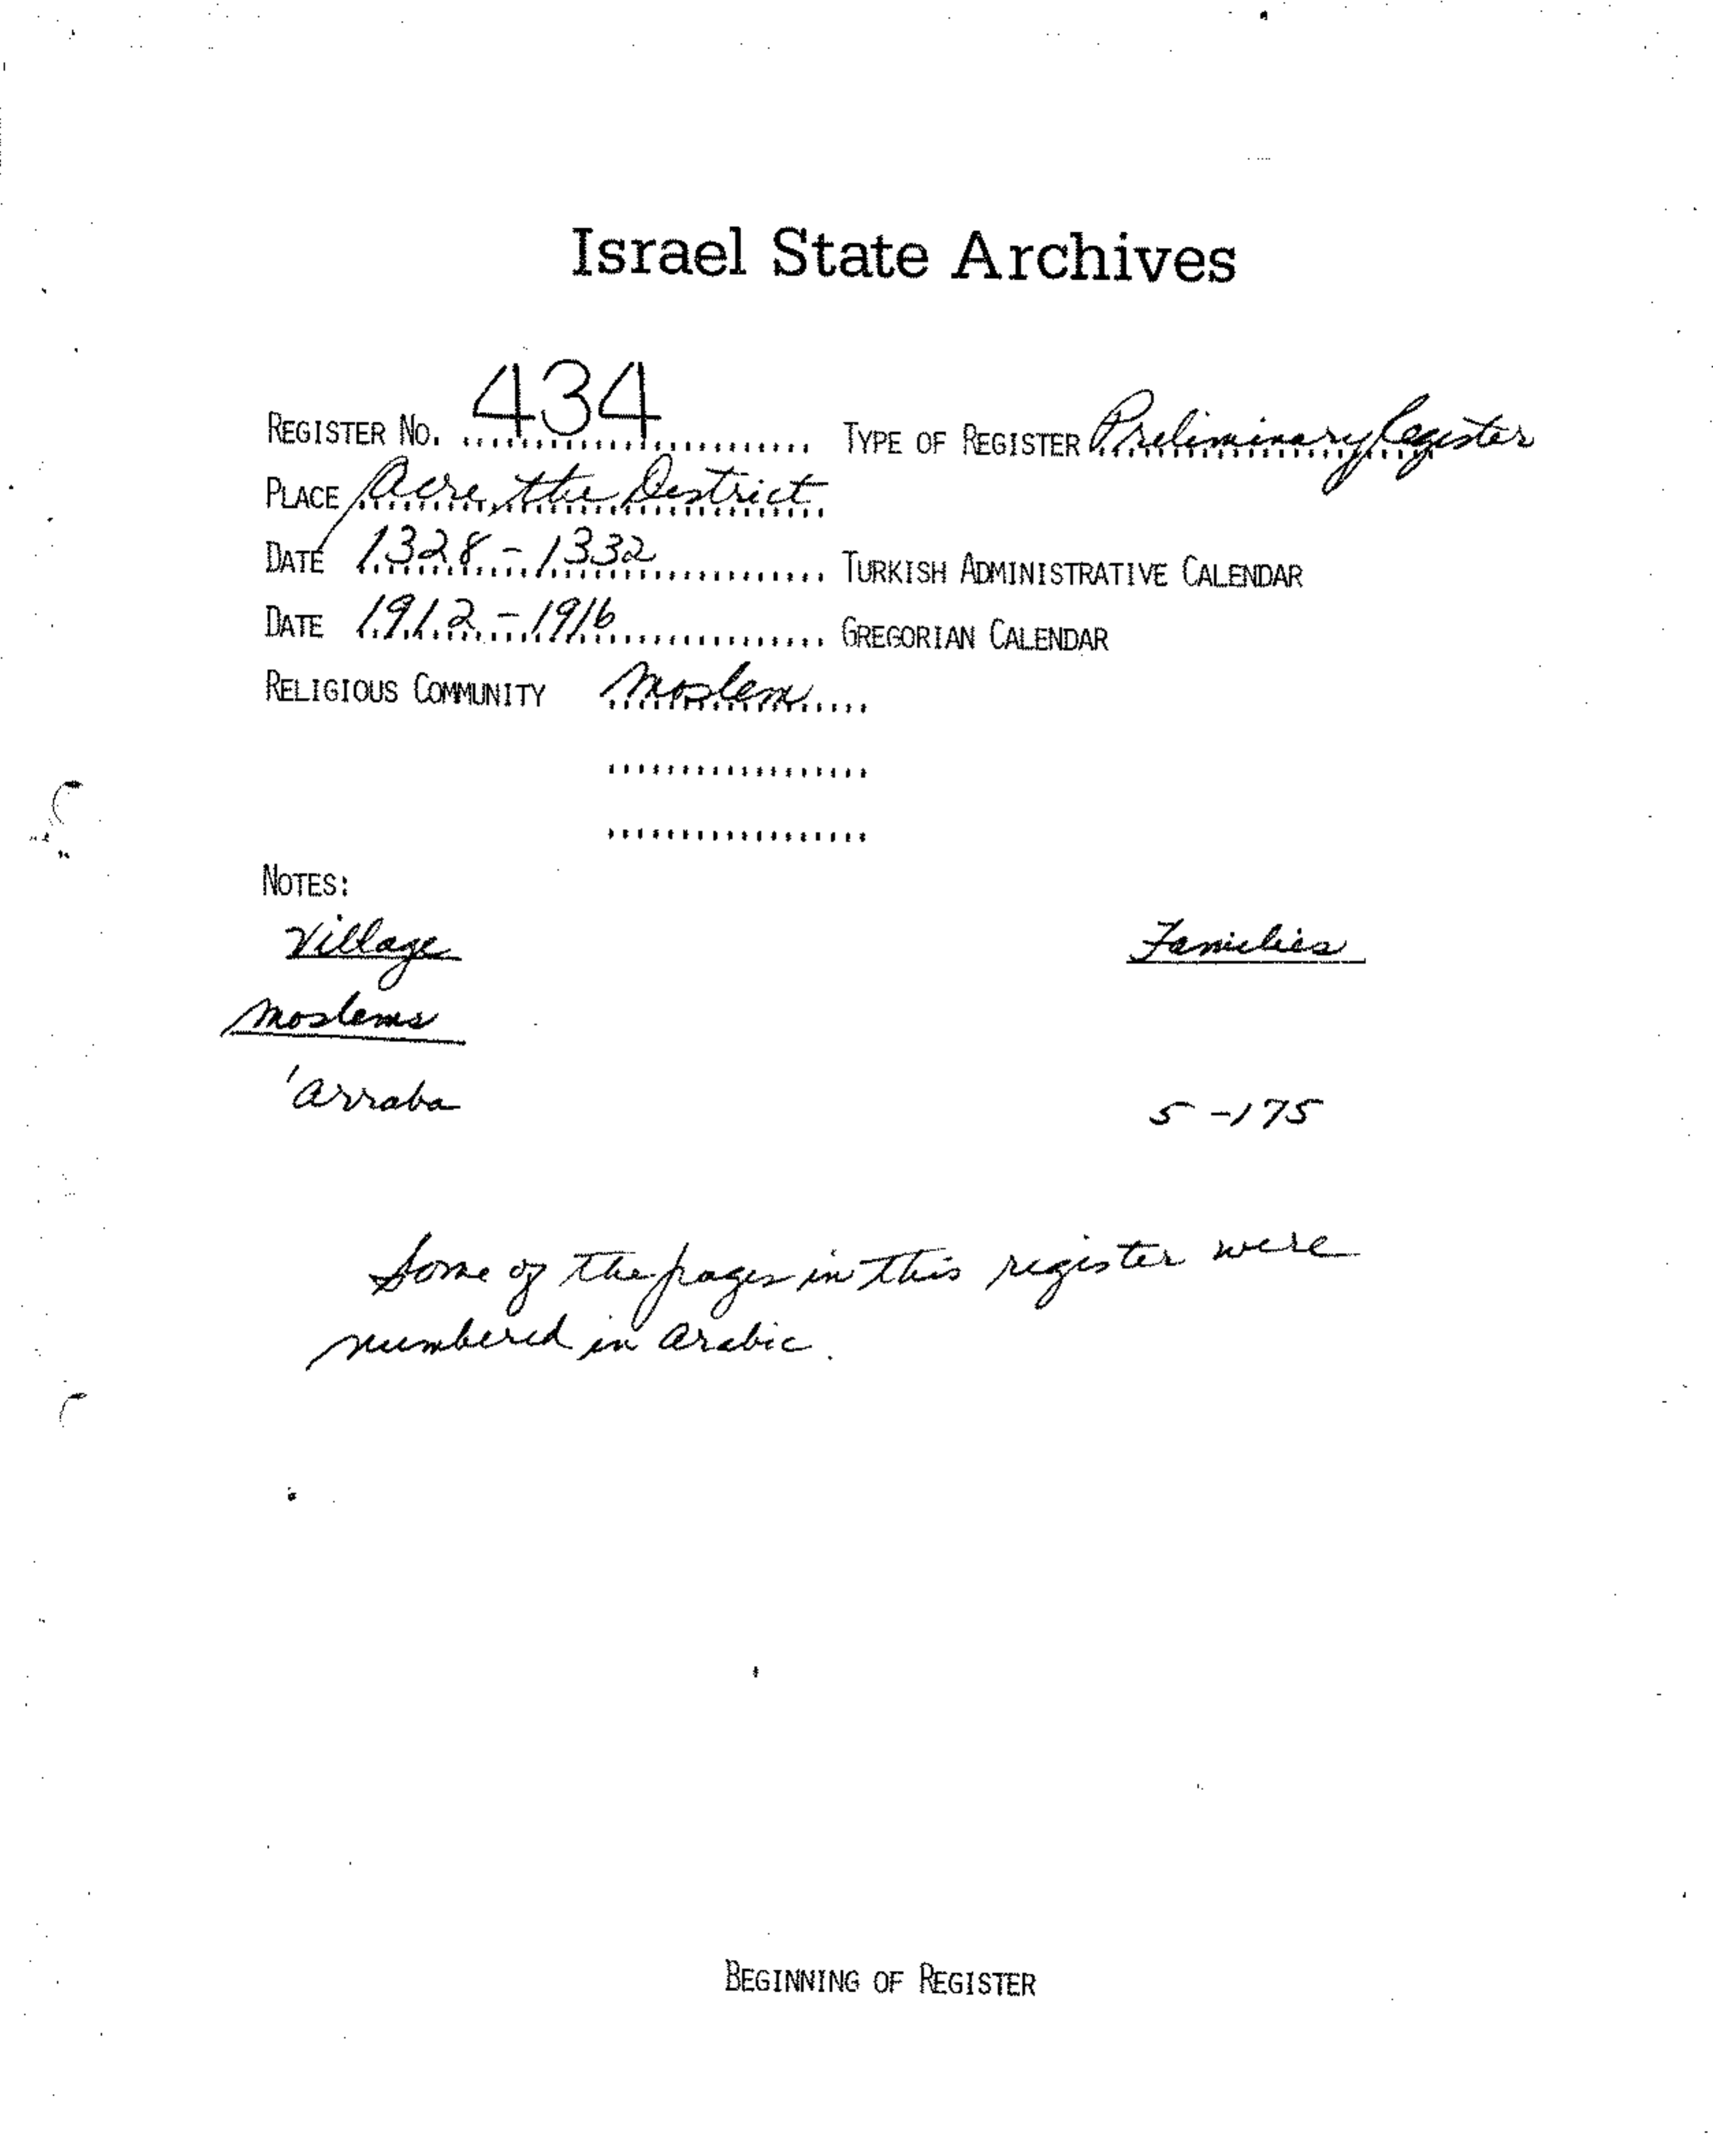 Israel State Archives
REGISTER NO. 434 TYPE OF REGISTER Preliminary Register
PLACE Acre, the District
DATE 1328-1332 TURKISH ADMINISTRATIVE CALENDAR
DATE 1912-1916 GREGORIAN CALENDAR
RELIGIOUS COMMUNITY Moslem
NOTES:
Village Families
Moslems
'Arraba 5-175
Some of the pages in this register were
numbered in Arabic.
BEGINNING OF REGISTER